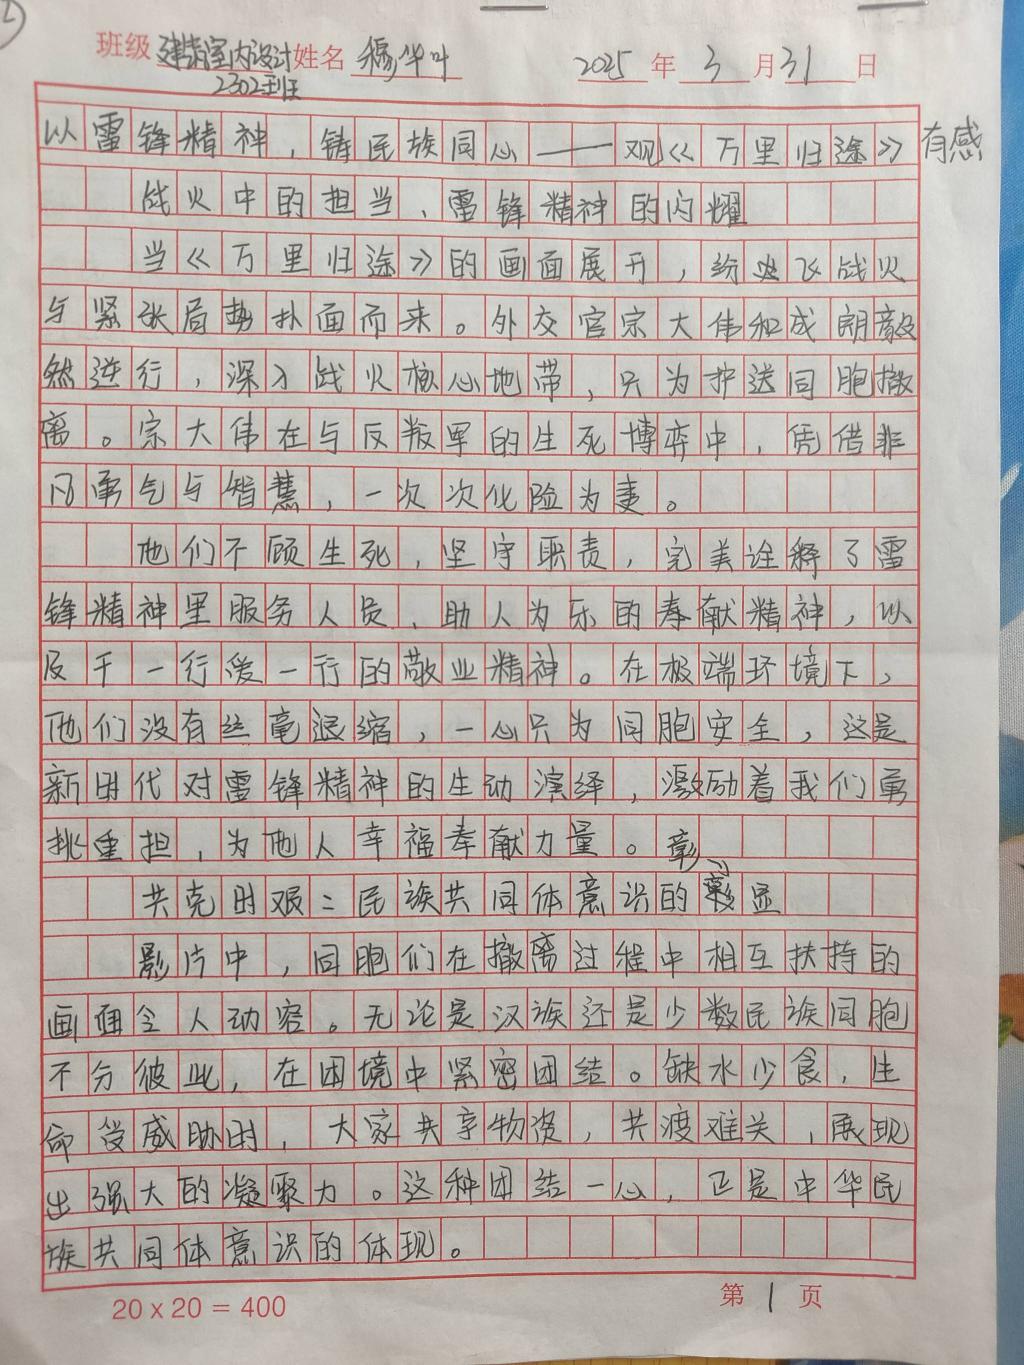 班级 建筑室内设计 姓名 杨华叶 2025 年 3 月 31 日
2302班
以雷锋精神，铸民族同心——观《万里归途》有感
战火中的担当、雷锋精神的闪耀
当《万里归途》的画面展开，纷飞战火
与紧张局势扑面而来。外交官宗大伟和成朗毅
然逆行，深入战火核心地带，只为护送同胞撤
离。宗大伟在与反叛军的生死博弈中，凭借非
凡勇气与智慧，一次次化险为夷。
他们不顾生死，坚守职责，完美诠释了雷
锋精神里服务人员、助人为乐的奉献精神，以
及干一行爱一行的敬业精神。在极端环境下，
他们没有丝毫退缩，一心只为同胞安全，这是
新时代对雷锋精神的生动演绎，激励着我们勇
挑重担，为他人幸福奉献力量。 彰
共克时艰：民族共同体意识的显
影片中，同胞们在撤离过程中相互扶持的
画面令人动容。无论是汉族还是少数民族同胞
不分彼此，在困境中紧密团结。缺水少食，生
命受威胁时，大家共享物资，共渡难关，展现
出强大的凝聚力。这种团结一心，正是中华民
族共同体意识的体现。
20 x 20 = 400 第 1 页